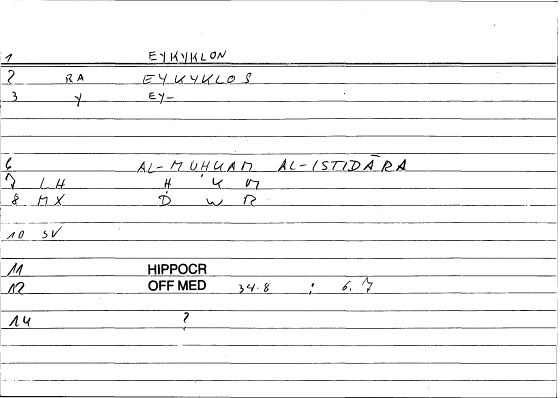 1 EYKYKLON
2 RA EYKYKLOS
3 Y EY-
6 AL-MUḤKAM AL-ISTIDĀRA
7 LH Ḥ K M
8 MX D W R
10 SV
11 HIPPOCR
12 OFF MED 34.8 ; 6.7
14 ?